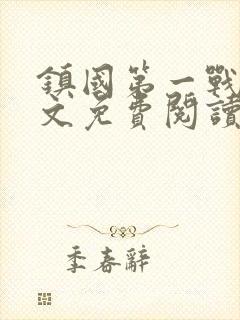 鎮國第一戰
文免費閱讀
季春辭